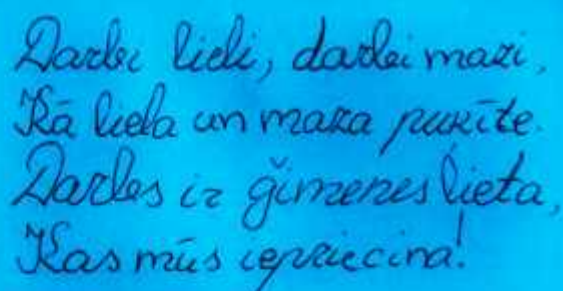 Darbi lieli, darbi mazi,
Kā liela un maza puķīte.
Darbs ir ģimenes lieta,
Kas mūs iepriecina!